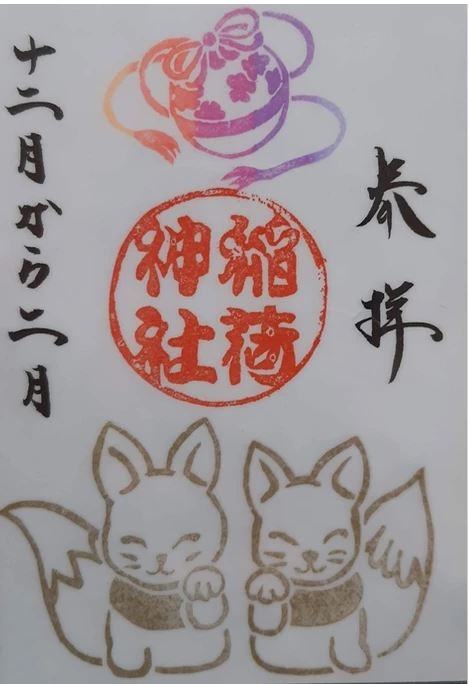 奉拝
稲荷
神社
十二月から二月